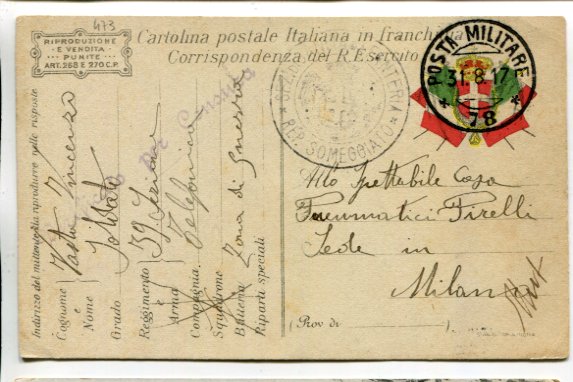 473
RIPRODUZIONE
E VENDITA
PUNITE
ART. 268 E 270 C.P.
Cartolina postale Italiana in franchigia
Corrispondenza del R. Esercito
POSTA MILITARE
31.8.17
78
REP. SOMEGGIATO
Indirizzo del mittente da riprodurre nelle risposte
Cognome e Nome
Vincenzo
Grado
Soldato
Reggimento e Arma
39
Compagnia
Telefonica
Squadrone
Batteria
Zona di Guerra
Riparti speciali
Allo Spettabile Casa
Pneumatici Pirelli
Sede in
Milano
(Prov di